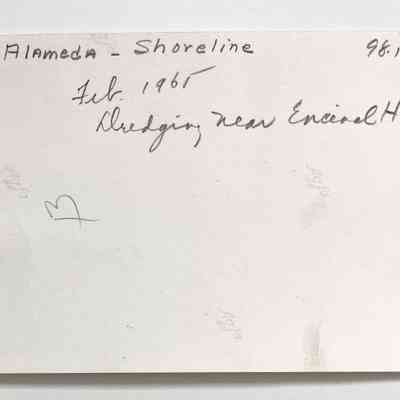 Alameda - Shoreline 98.1
Feb. 1965
Dredging near Encinal H